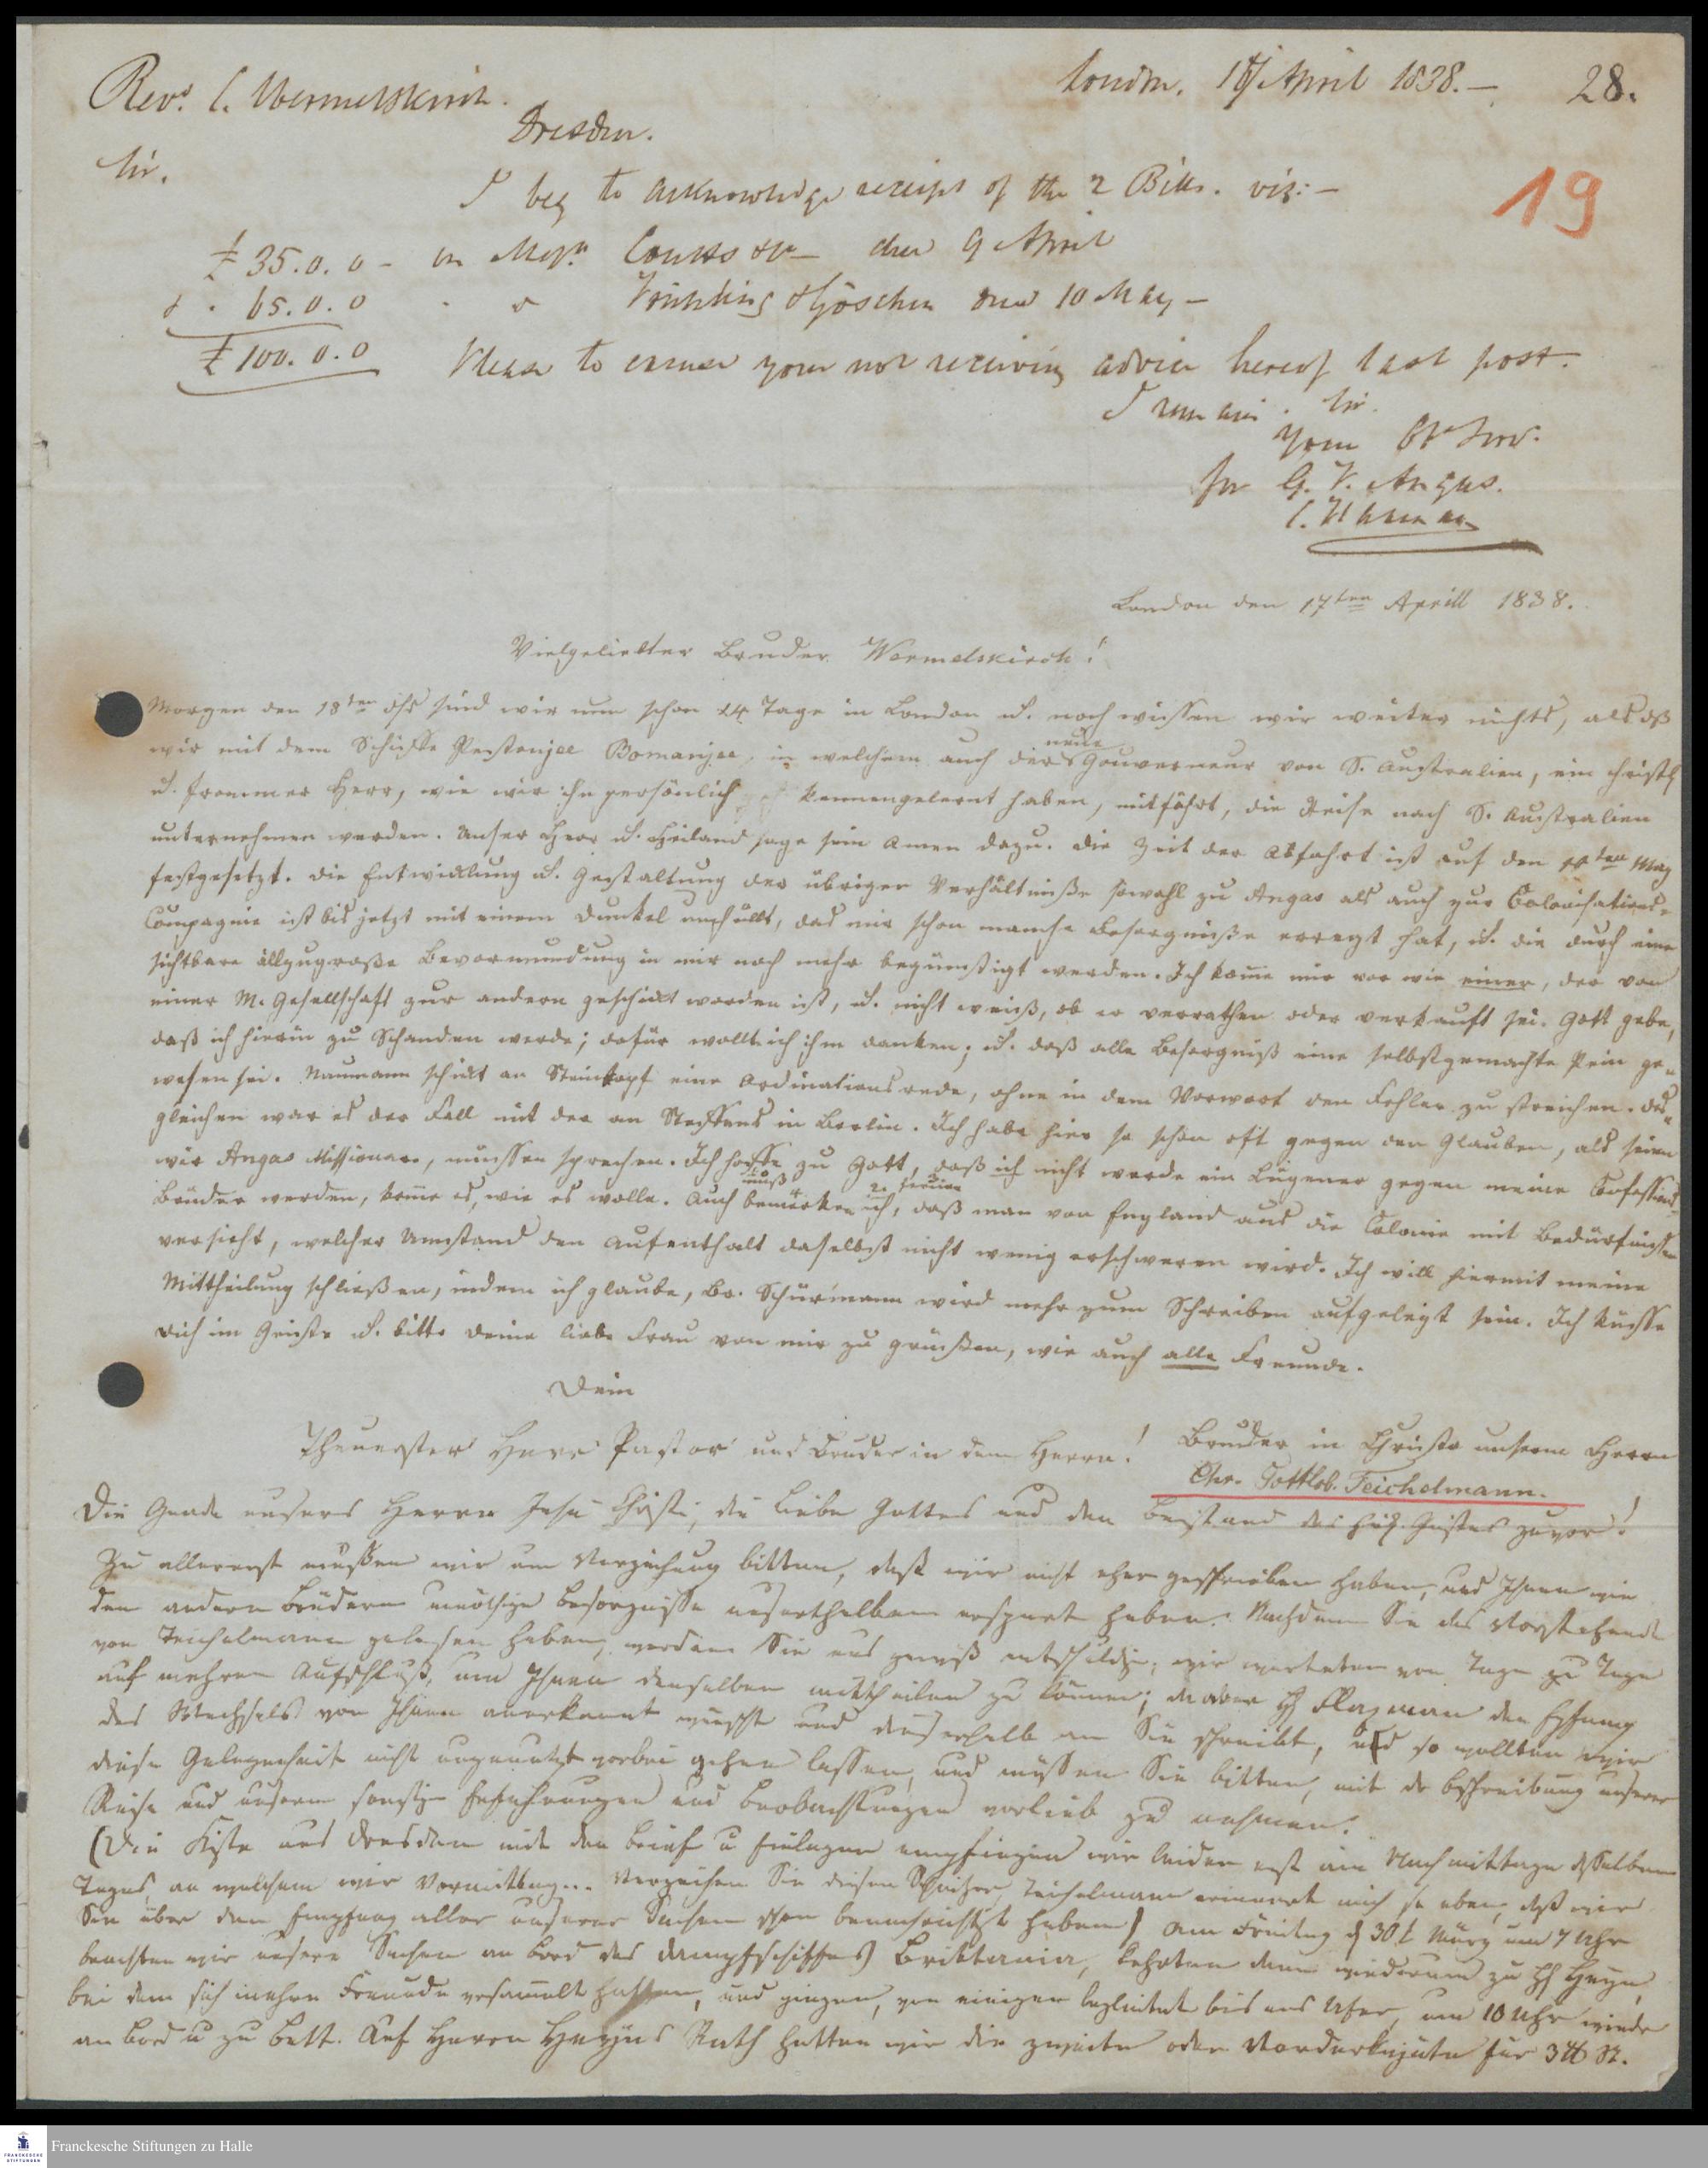 Revd. C. Wermelskirch.
London. 17 April 1838. —
28.
Dresden.
Sir.
19
I beg to acknowledge receipt of the 2 Bills. viz: —
£ 35. 0. 0 — on Messrs Coutts & Co — due 9 April
65. 0. 0 Frühling & Göschen due 10 May —
£ 100. 0. 0 Please to excuse your not receiving advice hereof last post.
I remain. Sir.
Your Obt Serv.
for G. F. Angas.
London den 17ten Aprill 1838.
Vielgeliebter Bruder Wermelskirch!
Morgen den 18ten dss sind wir nun schon 14 Tage in London u. noch wissen wir weiter nichts, als dß
wir mit dem Schiffe Pestonjee Bomanjee, in welchem auch der neue Gouverneur von S. Australien, ein christl
u. frommer Herr, wie wir ihn persönlich kennengelernt haben, mitfährt, die Reise nach S. Australien
unternehmen werden. Unser Herr u. Heiland sage sein Amen dazu. Die Zeit der Abfahrt ist auf den ten May
festgesetzt. Die Entwicklung u. Gestaltung der übrigen Verhältniße sowohl zu Angas als auch zur Colonisations-
Compagnie ist bis jetzt mit einem Dunkel umhüllt, das mir schon manche Besorgniße erregt hat, u. die durch eine
sichtbare allzugroße Bevormundung in mir noch mehr begünstigt werden. Ich kome mir vor wie einer, der von
einer M. Gesellschaft zur andern geschickt worden ist, u. nicht weiß, ob er verrathen oder verkauft sei. Gott gebe,
daß ich hierin zu Schanden werde; dafür wollte ich ihm danken; u. daß alle Besorgniß eine selbstgemachte Pein ge-
wesen sei. Naumann schickt an Steinkopf eine Ordinationsrede, ohne in dem Vorwort den Fehler zu streichen. Des-
gleichen war es der Fall mit der an Steffens in Berlin. Ich habe hier so schon oft gegen den Glauben, als seien
wir Angas Missionare, müssen sprechen. Ich hoffe zu Gott, daß ich nicht werde ein Lügener gegen meine Confessions-
Brüder werden, kome es, wie es wolle. Auch muß bemerken ich, ferner daß man von England aus die Colonie mit Bedürfnissen
versieht, welcher Umstand den Aufenthalt daselbst nicht wenig erschweren wird. Ich will hiermit meine
Mittheilung schließen, indem ich glaube, Br. Schürmann wird mehr zum Schreiben aufgelegt sein. Ich küsse
dich im Geiste u. bitte deine liebe Frau von mir zu grüßen, wie auch alle Freunde.
Dein
Bruder in Christo unserm Herrn
Chr. Gottlob. Teichelmann.
Theuerster Herr Pastor und Bruder in dem Herrn!
Die Gnade unsers Herrn Jesu Christi, die Liebe Gottes und den Beistand des heilg. Geistes zuvor!
Zu allererst müssen wir um Verzeihung bitten, daß wir nicht eher geschrieben haben, und Ihnen wie
den andern Brüdern unnöthige Besorgnisse unserthalben erspart haben. Nachdem Sie das Vorstehende
von Teichelmann gelesen haben, werden Sie uns gewiß entschuldigen; wir warteten von Tage zu Tage
auf mehren Aufschluß, um Ihnen denselben mittheilen zu können; da aber H Flaxman den Empfang
des Wechsels von Ihnen anerkannt wünscht und deßhalb an Sie schreibt, so wollten wir
diese Gelegenheit nicht ungenutzt vorbei gehen lassen, und müssen Sie bitten, mit der Beschreibung unserer
Reise und unserm sonstigen Erfahrungen und Beobachtungen vorlieb zu nehmen.
(Die Kiste aus Dresden mit den Brief u Einlagen empfingen wir leider erst am Nachmittage desselben
Tages, an welchem wir Vormittag... Verzeihen Sie diesen Schnitzer, Teichelmann erinnert mich so eben, dß wir
Sie über den Empfang aller unserer Sachen schon benachrichtigt haben) Am Freitag d 30t März um 7 Uhr
brachten wir unsere Sachen an Bord des Dampfschiffes Brittania, kehrten dann wiederum zu H Heyn,
bei dem sich mehre Freunde versamelt hatten, und gingen, von einigen begleitet bis ans Ufer, um 10 Uhr wieder
an Bord u zu Bett. Auf Herrn Heyns Rath hatten wir die zweite oder Vorderkajüte für 3 ℔ St.
Franckesche Stiftungen zu Halle